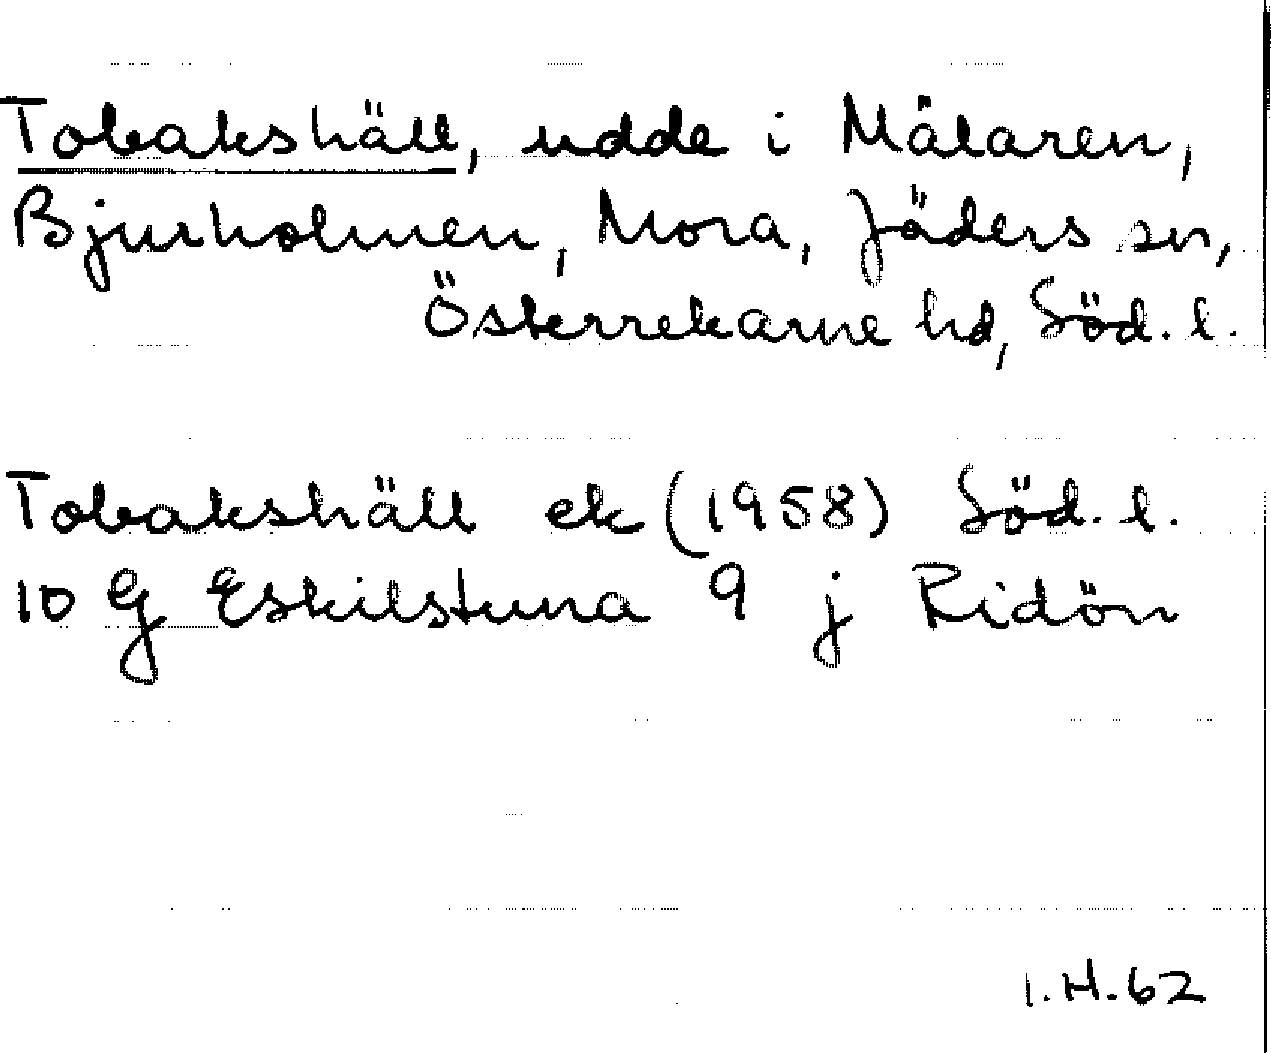 Tobakshäll, udde i Mälaren,
Bjurholmen, Mora, Jäders sn,
Österrekarne hd, Söd. l.
Tobakshäll ek (1958) Söd. l.
10 G Eskilstuna 9 j Ridön
I.H.62